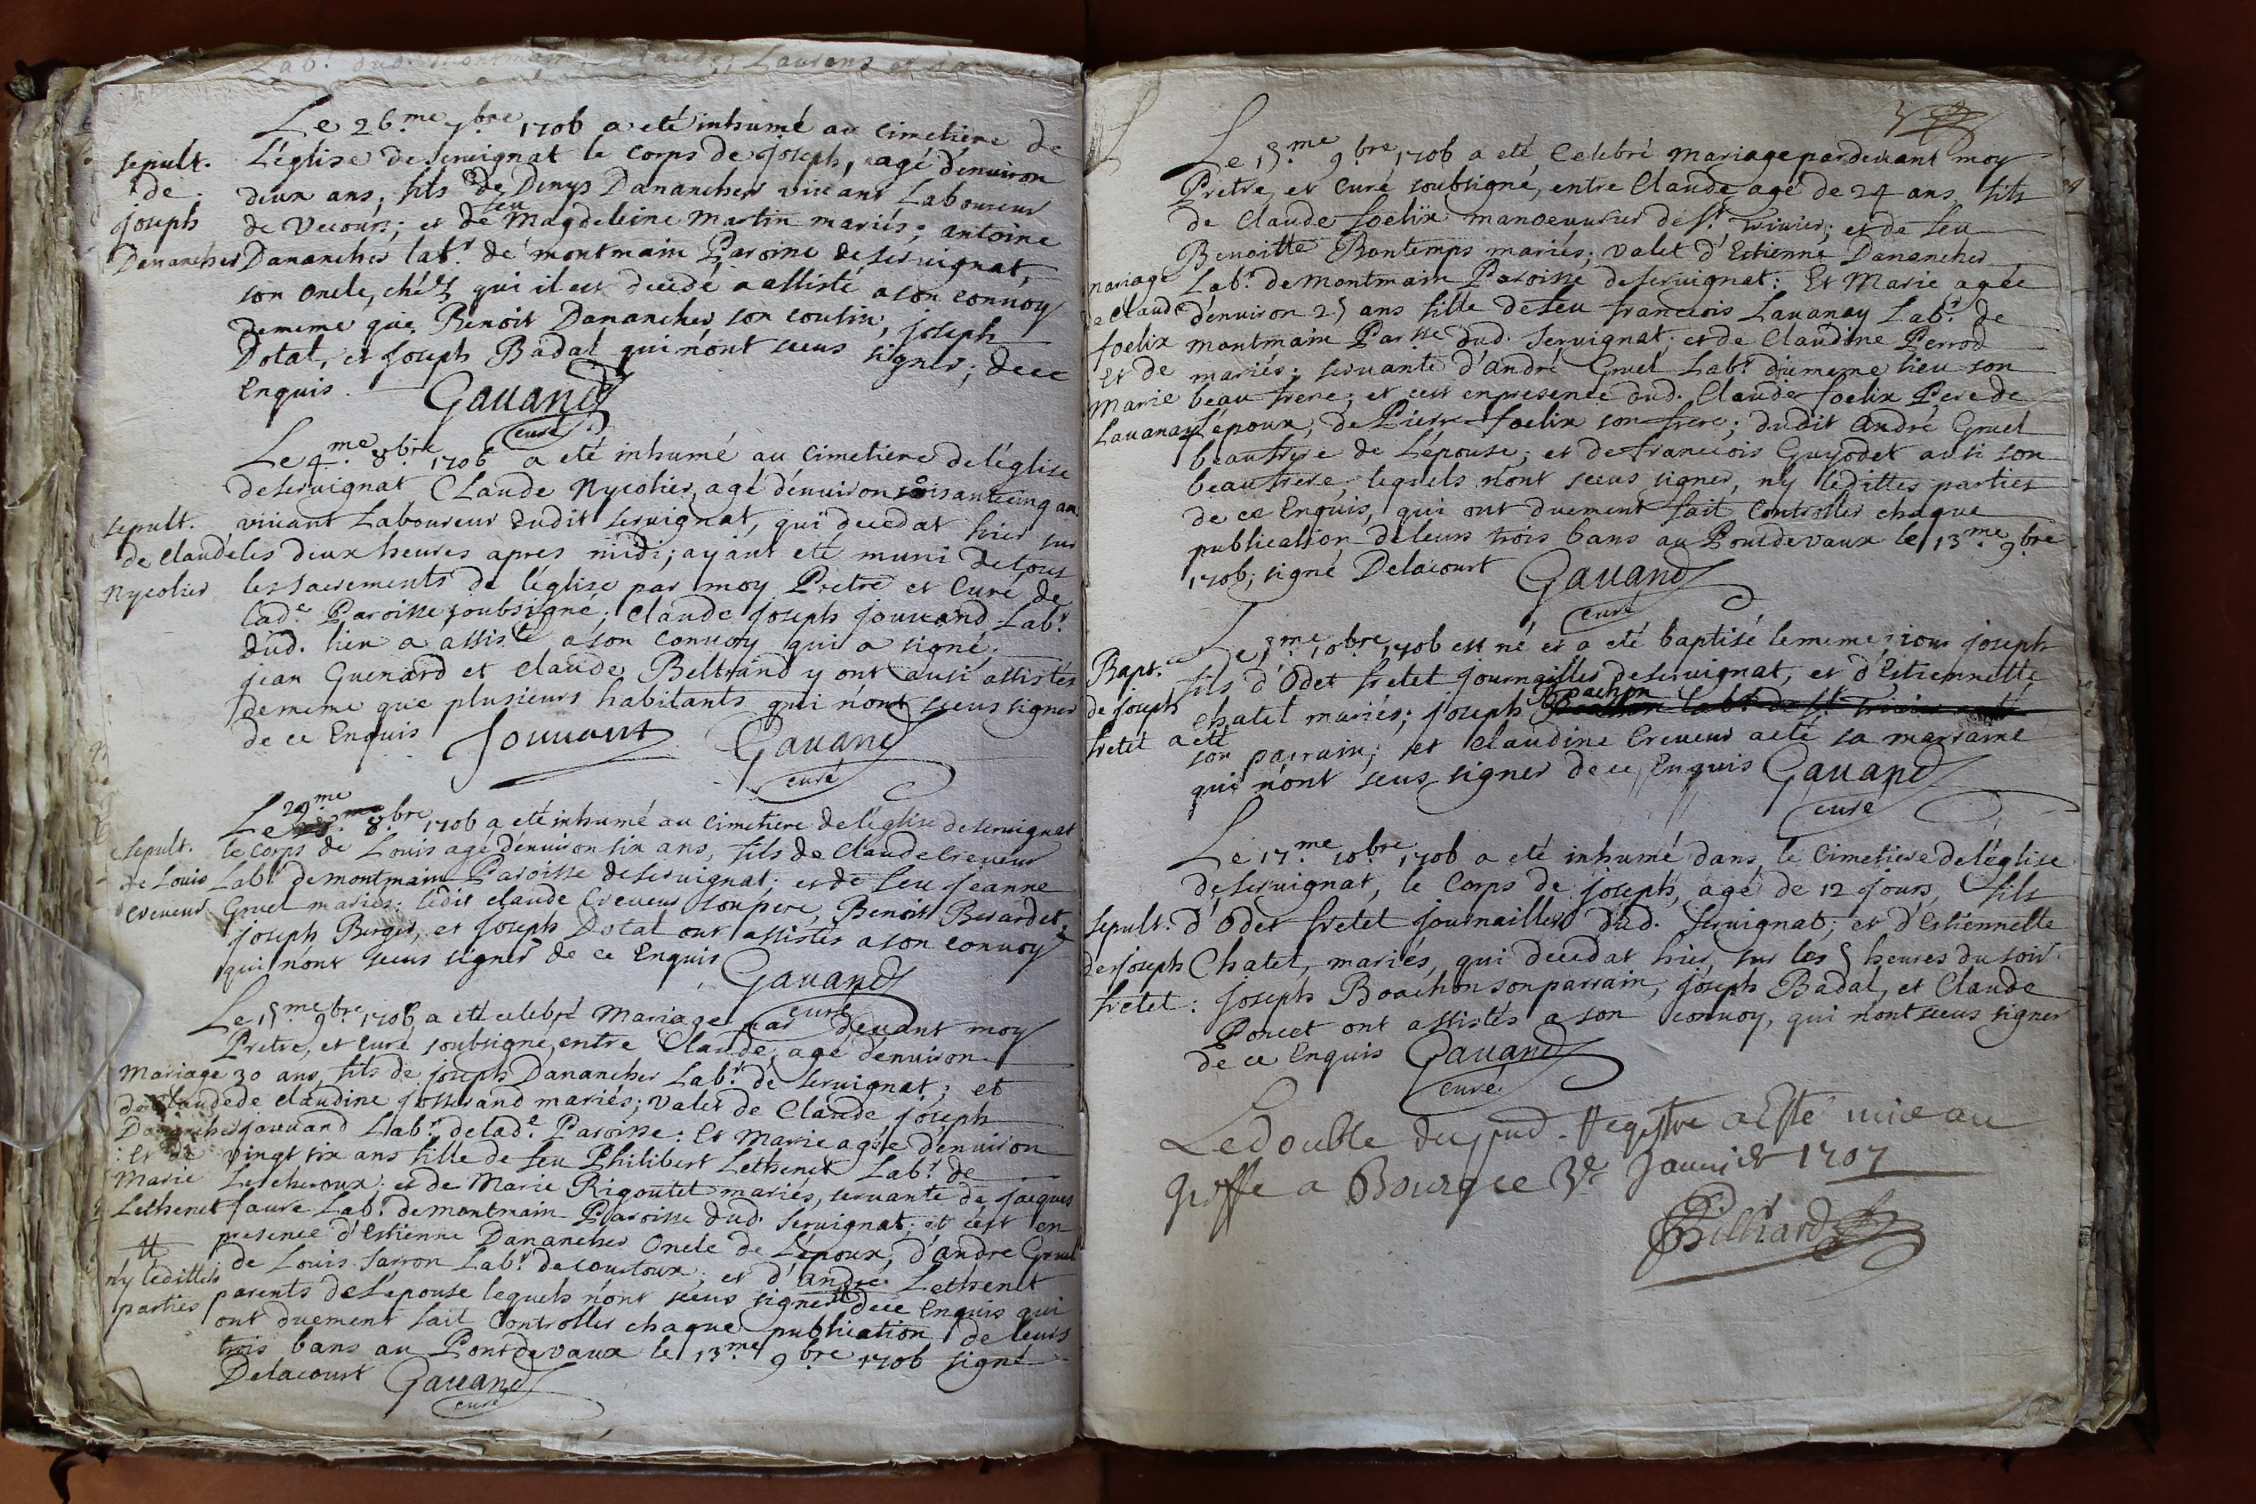 Le 26.me 7.bre 1706 a eté inhumé au cimetiere de
sepult. L'église de servignat le corps de joseph, agé d'environ
de deux ans; fils de Denys Dananches vivant Laboureur
joseph de Vecours; et de feu Magdeleine Martin mariés; antoine
Dananches Dananches lab.r de montmain Paroisse de servignat,
son oncle, chéz qui il est decedé a assisté a son convoy
dememe que Benoit Dananches son cousin, joseph
Dotal, et joseph Badal qui n'ont sceus signer; de ce
Enquis. Gavand
curé
Le 4.me 8.bre 1706 a eté inhumé au cimetiere de l'église
de servignat Claude Nycolier, agé d'environ soisantecinq an
sepult. vivant Laboureur dudit servignat, qui decedat hier sur
de Claude les deux heures apres midi; ayant eté muni de tous
Nycolier les sacrements de l'église par moy Pretre et Curé de
lad.e Paroisse soubsigné; Claude joseph jouvand Lab.r
dud. lieu a assisté a son convoy qui a signé.
jean Guenard et Claude Beltrand y ont ausi assistés
dememe que plusieurs habitants qui n'ont sceus signer
de ce Enquis Jouvant Gavand
curé
Le 29.me 8.bre 1706 a eté inhumé au cimetiere de l'église de servignat
sepult. le corps de Louis agé d'environ six ans, fils de Claude Creveur
de Louis Lab.r de montmain Paroisse de servignat; et de feu Jeanne
creveur Gruel mariés; ledit claude Creveur son pere, Benoit Berardet,
joseph Berger, et joseph Dotal ont assistés a son convoy
qui n'ont sceus signer de ce Enquis Gavand
curé
Le 15.me 9.bre 1706 a eté celebré Mariage par devant moy
Pretre, et curé soubsigné, entre Claude, agé d'environ
Mariage 30 ans, fils de joseph Dananches Lab.r de servignat; et
de Claude de Claudine josserand mariés; valet de Claude joseph
Dananches jouvand Lab.r de lad.e Paroisse: Et Marie agée d'environ
: Et de vingt six ans fille de feu Philibert Lethenet Lab.r de
Marie Lescheroux; et de Marie Rigoutet mariés, servante de jacques
Lethenet faure Lab.r de montmain Paroisse dud. servignat; et c'est en
presence d'Estienne Dananches oncle de l'époux, d'andre Gruel
# de Louis sarron Lab.r de courtoux; et d'andré Lethenet
n'y ledittes parents de l'epouse lequels n'ont sceus signer # de ce Enquis qui
parties ont duement fait Controller chaque publication de leurs
trois bans au Pontdevaux le 13.me 9.bre 1706 signé
Delacourt Gavand
curé
Le 15.me 9.bre 1706 a eté Celebré mariage pardevant moy
Pretre, et Curé soubsigné, entre Claude, agé de 24 ans, fils
de Claude foelix manoeuvrier de s.t trivier; et de feu
Benoitte Bontemps mariés; valet d'Estienne Dananches
mariage Lab.r de montmain Paroisse de servignat: Et Marie agée
de Claude d'environ 25 ans fille de feu francois Lavanay Lab.r de
foelix montmain Par.sse dud. servignat; et de Claudine Perrod
Et de mariés; servante d'andré Gruel Lab.r dumeme lieu son
Marie beau frere; et c'est enpresence dud. Claude foelix Pere de
Lavanay L'époux, de Pierre foelix son frere; dudit André Gruel
beaufrere de L'épouse; et de francois Guyodet ausi son
beaufrere, lequels n'ont sceus signer, n'y ledittes parties
de ce Enquis, qui ont duement fait Controller chaque
publication de leurs trois bans au Pontdevaux le 13.me 9.bre
1706; signé Delacourt Gavand
curé
Le 5.me 10.bre 1706 est né et a eté baptisé lememe jour joseph
Bapt. fils d'Odet fretet journaillier de servignat, et d'Estiennette
de joseph Chatet mariés; joseph Boachon
fretet a eté son parrain; et Claudine Creveur a eté sa marraine
qui n'ont sceus signer de ce Enquis Gavand
curé
Le 17.me 10.bre 1706 a eté inhumé dans le Cimetiere de l'église
de servignat, le Corps de joseph, agé de 12 jours, fils
sepult. d'Odet fretet journaillier dud. servignat; et d'Estiennette
de joseph Chatet, mariés, qui decedat hier, sur les 5 heures du soir.
fretet: joseph Boachon son parrain, joseph Badal, et Claude
Poncet ont assistés a son convoy, qui n'ont sceus signer
de ce Enquis Gavand
curé
Le double du pnd. Registre a Esté mis au
Greffe a Bourg ce 3.e Janvier 1707
Billiard